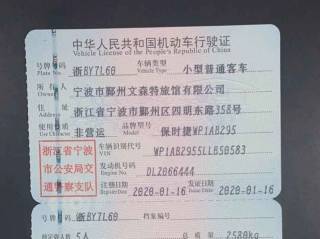 中华人民共和国机动车行驶证
Vehicle License of the People's Republic of China
号牌号码 浙BY7L60 车辆类型 小型普通客车
Plate No. Vehicle Type
所有人 宁波市鄞州文森特旅馆有限公司
Owner
住址 浙江省宁波市鄞州区四明东路358号
Address
使用性质 非营运 品牌型号 保时捷WP1AB295
Use Character Model
浙江省宁波
市公安局交
通警察支队
车辆识别代号 WP1AB2955LLB50583
VIN
发动机号码 DLZ066444
Engine No.
注册日期 2020-01-16 发证日期 2020-01-16
Register Date Issue Date
号牌号码 浙BY7L60 档案编号
5人 2580kg